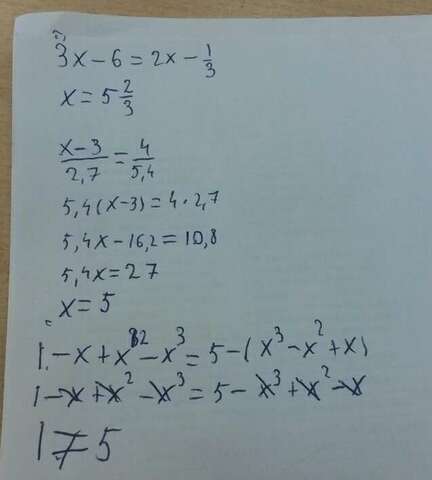 3x-6=2x-1/3
x=5 2/3
(x-3)/2,7=4/5,4
5,4(x-3)=4·2,7
5,4x-16,2=10,8
5,4x=27
x=5
1-x+x²-x³=5-(x³-x²+x)
1-x+x²-x³=5-x³+x²-x
1≠5